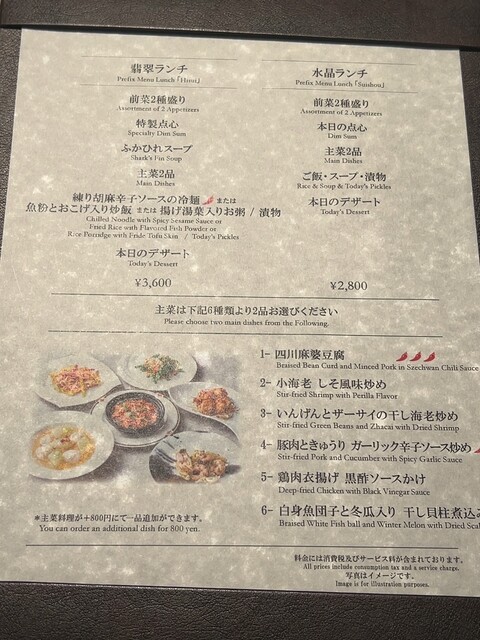 翡翠ランチ
Prefix Menu Lunch「Hisui」
前菜2種盛り
Assortment of 2 Appetizers
特製点心
Specialty Dim Sum
ふかひれスープ
Shark's Fin Soup
主菜2品
Main Dishes
練り胡麻辛子ソースの冷麺 または
魚粉とおこげ入り炒飯 または 揚げ湯葉入りお粥 / 漬物
Chilled Noodle with Spicy Sesame Sauce or
Fried Rice with Flavored Fish Powder or
Rice Porridge with Fride Tofu Skin / Today's Pickles
本日のデザート
Today's Dessert
¥3,600
水晶ランチ
Prefix Menu Lunch「Suishou」
前菜2種盛り
Assortment of 2 Appetizers
本日の点心
Dim Sum
主菜2品
Main Dishes
ご飯・スープ・漬物
Rice & Soup & Today's Pickles
本日のデザート
Today's Dessert
¥2,800
主菜は下記6種類より2品お選びください
Please choose two main dishes from the Following.
1- 四川麻婆豆腐
Braised Bean Curd and Minced Pork in Szechwan Chili Sauce
2- 小海老 しそ風味炒め
Stir-fried Shrimp with Perilla Flavor
3- いんげんとザーサイの干し海老炒め
Stir-fried Green Beans and Zhacai with Dried Shrimp
4- 豚肉ときゅうり ガーリック辛子ソース炒め
Stir-fried Pork and Cucumber with Spicy Garlic Sauce
5- 鶏肉衣揚げ 黒酢ソースかけ
Deep-fried Chicken with Black Vinegar Sauce
6- 白身魚団子と冬瓜入り 干し貝柱煮込み
Braised White Fish ball and Winter Melon with Dried
*主菜料理が+800円にて一品追加ができます。
You can order an additional dish for 800 yen.
料金には消費税及びサービス料が含まれております。
All prices include consumption tax and a service charge.
写真はイメージです。
Image is for illustration purposes.